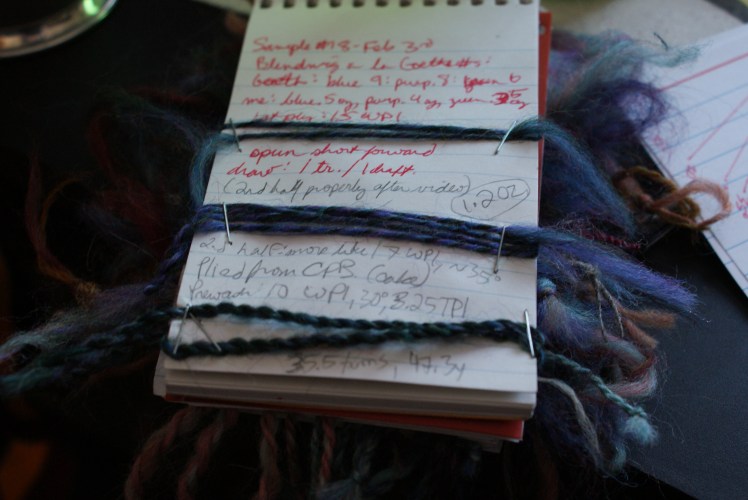 Sample #18 - Feb 3rd
Blending a la Goethe #s:
Goeth: blue 9: purp. 8: green 6
me: blue .5 oz, purp. .4 oz, green
: 15 WPI
spun short forward
draw: 1 tr. / 1 draft.
(2nd half properly after video)
1.2oz
2nd half: more like 17 WPI, ~35°
Plied from CPB (cake)
Prewash: 10 WPI, 30°, 3.25 TPI
35.5 turns, 47.3y